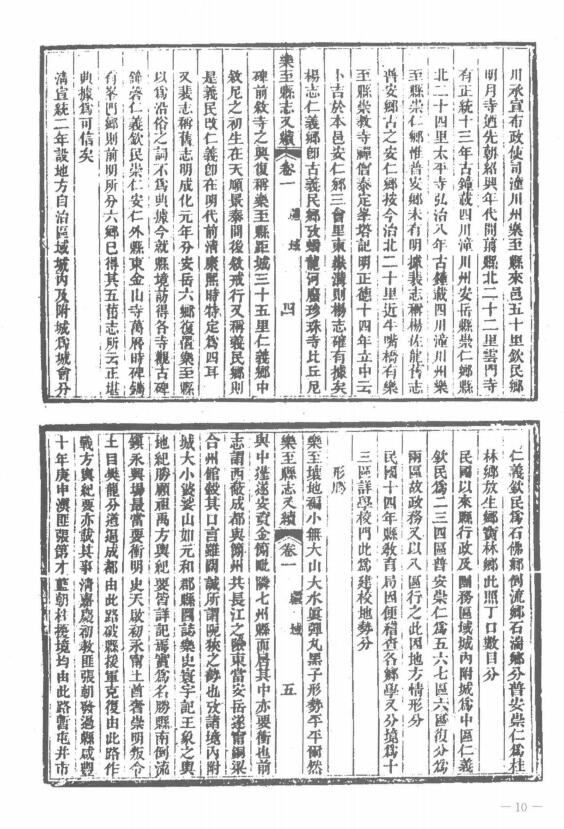 川承宣布政使司潼川州樂至縣來邑五十里欽民鄉
明月寺迺先朝紹興年代間舊縣北二十二里雲門寺
有正統十三年古鐘載四川潼川州安岳縣崇仁鄉縣
北二十四里太平寺弘治八年古鐘載四川潼川州樂
至縣崇仁鄉惟普安鄉未有明據裴志稱楊佐龍舊志
普安鄉古之安仁鄉按今治北二十里近牛嘴橋有樂
至縣崇教寺禪僧泰定峯塔記明正德十四年立中云
卜吉於本邑安仁鄉三會里東嶽溝則楊志確有據矣
楊志仁義鄉卽古義民鄉攷蟠龍河廢珍珠寺比丘尼
樂至縣志又續 卷一 疆域 四
碑前敘寺之興復稱樂至縣距城三十五里仁義鄉中
敘尼之初生在天順景泰間後敘戒行又稱義民鄉則
是義民改仁義卽在明代前清康熙時特定爲四耳
又裴志稱舊志明成化元年分安岳六鄉復置樂至縣
以爲沿俗之詞不爲典據今就縣境訪得各寺觀古碑
鐘磬仁義欽民崇仁安仁外縣東金山寺萬曆時碑鐫
有峯門鄉則前明所分六鄉已得其五舊志所云正堪
典據爲可信矣
清宣統二年設地方自治區域城內及附城爲城會分
仁義欽民爲石佛鄉倒流鄉石湍鄉分普安崇仁爲桂
林鄉放生鄉寶林鄉此照丁口數目分
民國以來縣行政及團務區域城內附城爲中區仁義
欽民爲二三四區普安崇仁爲五六七區六區復分爲
兩區故政務又以八區行之此因地方情形分
民國十四年縣教育局因便稽查各鄉學又分境爲十
三區詳學校門此爲建校地勢分
形勝
樂至壤地褊小無大山大水眞彈丸黑子形勢平平爾然
樂至縣志又續 卷一 疆域 五
與中潼遂安資金簡毗隣七州縣而居其中亦要衝也前
志謂西蔽成都與簡州共長江之險東當安岳遂甯銅梁
合州館轂其口言雖闊誠所謂阨狹之勢也攷諸境內附
城大小婆娑山如元和郡縣圖誌樂史寰宇記王象之輿
地紀勝顧祖禹方輿紀要皆詳記焉實爲名勝縣南倒流
鎮永興場最當要衝明史天啟初永甯土酋奢崇明叛令
土目樊龍分道逼成都由此路破縣援軍克復由此路作
戰方輿紀要亦載其事清嘉慶初教匪張朝發過縣咸豐
十年庚申滇匪張第才藍朝柱擾境均由此路暫屯井市
— 10 —